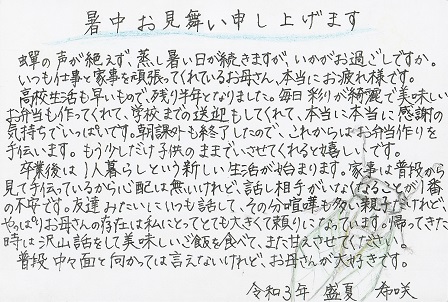 暑中お見舞い申し上げます
蟬の声が絶えず、蒸し暑い日が続きますが、いかがお過ごしですか。
いつも仕事と家事を頑張ってくれているお母さん、本当にお疲れ様です。
高校生活も早いもので、残り半年となりました。毎日彩りが綺麗で美味しい
お弁当も作ってくれて、学校までの送迎もしてくれて、本当に本当に感謝の
気持ちでいっぱいです。朝課外も終了したので、これからはお弁当作りを
手伝います。もう少しだけ子供のままでいさせてくれると嬉しいです。
卒業後は1人暮らしという新しい生活が始まります。家事は普段から
見て手伝っているから心配は無いけれど、話し相手がいなくなることが1番
の不安です。友達みたいにいつも話して、その分喧嘩も多い親子だけれど、
やっぱりお母さんの存在は私にとってとても大きくて頼りになっています。帰ってきた
時は沢山話をして美味しいご飯を食べて、また甘えさせてください。
普段中々面と向かっては言えないけれど、お母さんが大好きです。
令和3年 盛夏 希咲